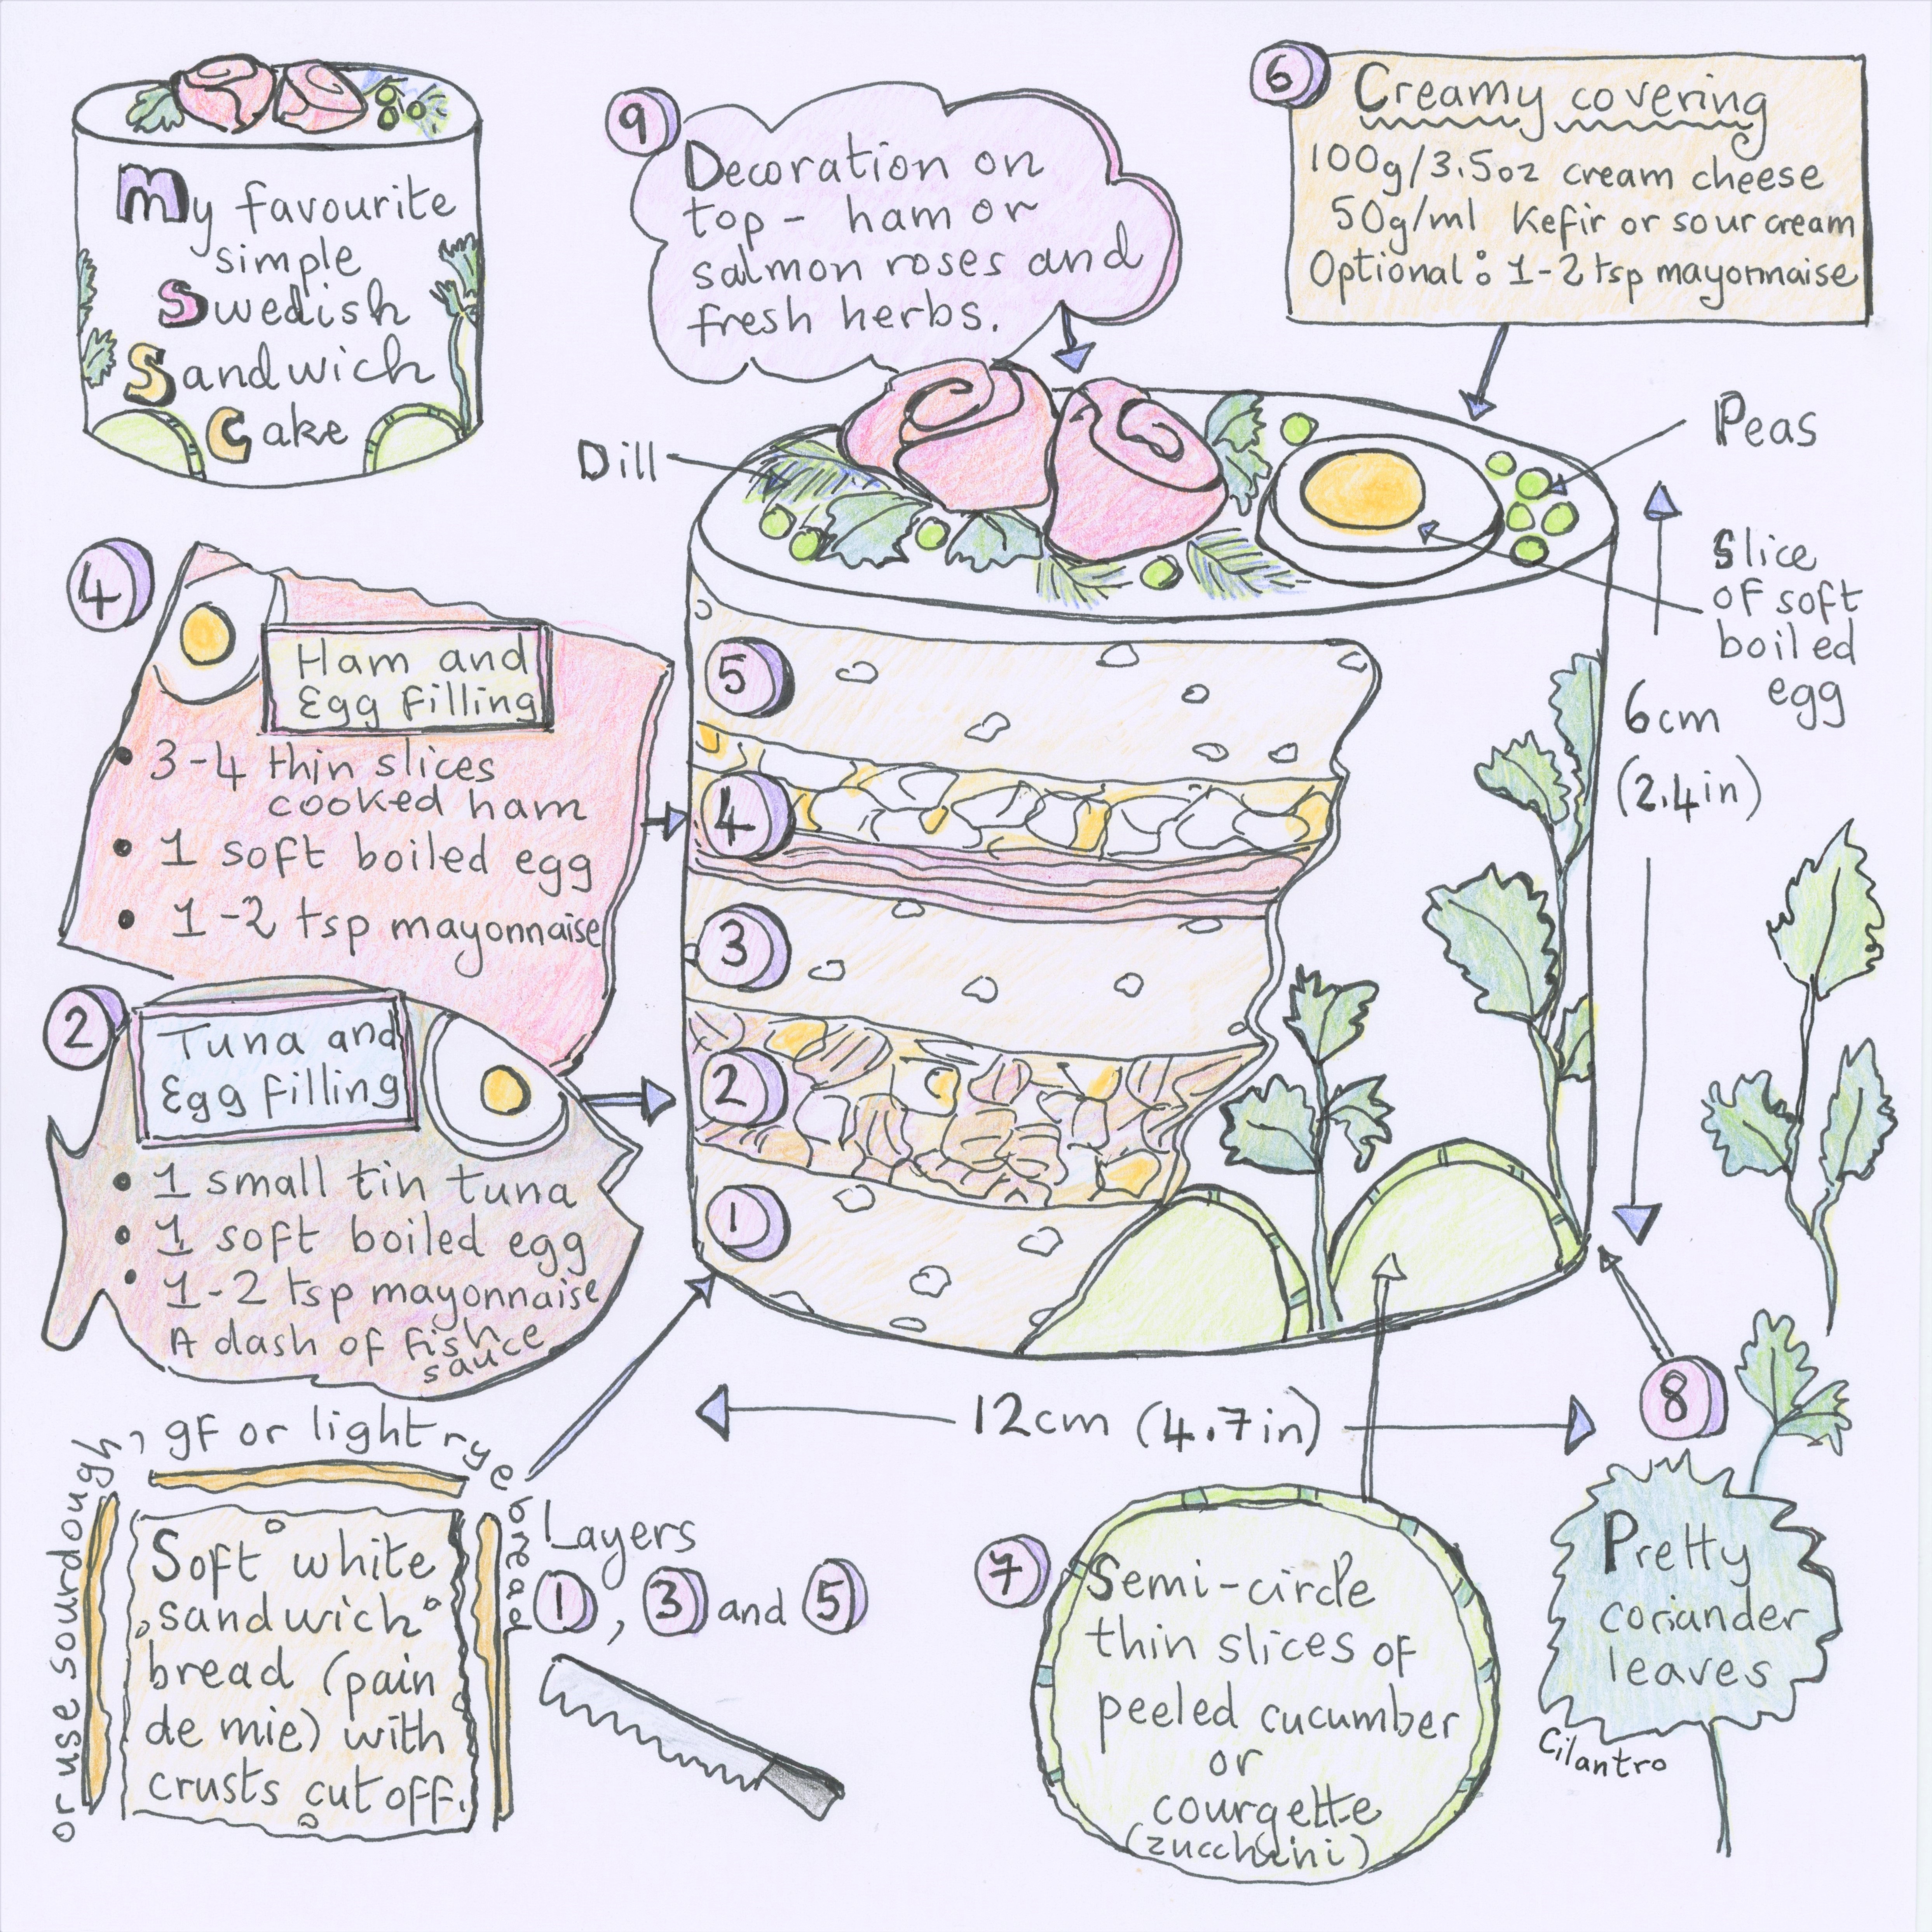 My favourite
simple
Swedish
Sandwich
Cake
9
Decoration on
top - ham or
salmon roses and
fresh herbs.
6
Creamy covering
100g/3.5oz cream cheese
50g/ml Kefir or sour cream
Optional: 1-2 tsp mayonnaise
Dill
Peas
Slice
of soft
boiled
egg
6cm
(2.4in)
4
Ham and
Egg filling
• 3-4 thin slices
cooked ham
• 1 soft boiled egg
• 1-2 tsp mayonnaise
2
Tuna and
Egg filling
• 1 small tin tuna
• 1 soft boiled egg
• 1-2 tsp mayonnaise
A dash of fish
sauce
5
4
3
2
1
12cm (4.7in)
or use sourdough, gf or light rye bread
Soft white
sandwich
bread (pain
de mie) with
crusts cut off.
Layers
1, 3 and 5
7
Semi-circle
thin slices of
peeled cucumber
or
courgette
(zucchini)
8
Pretty
coriander
leaves
Cilantro